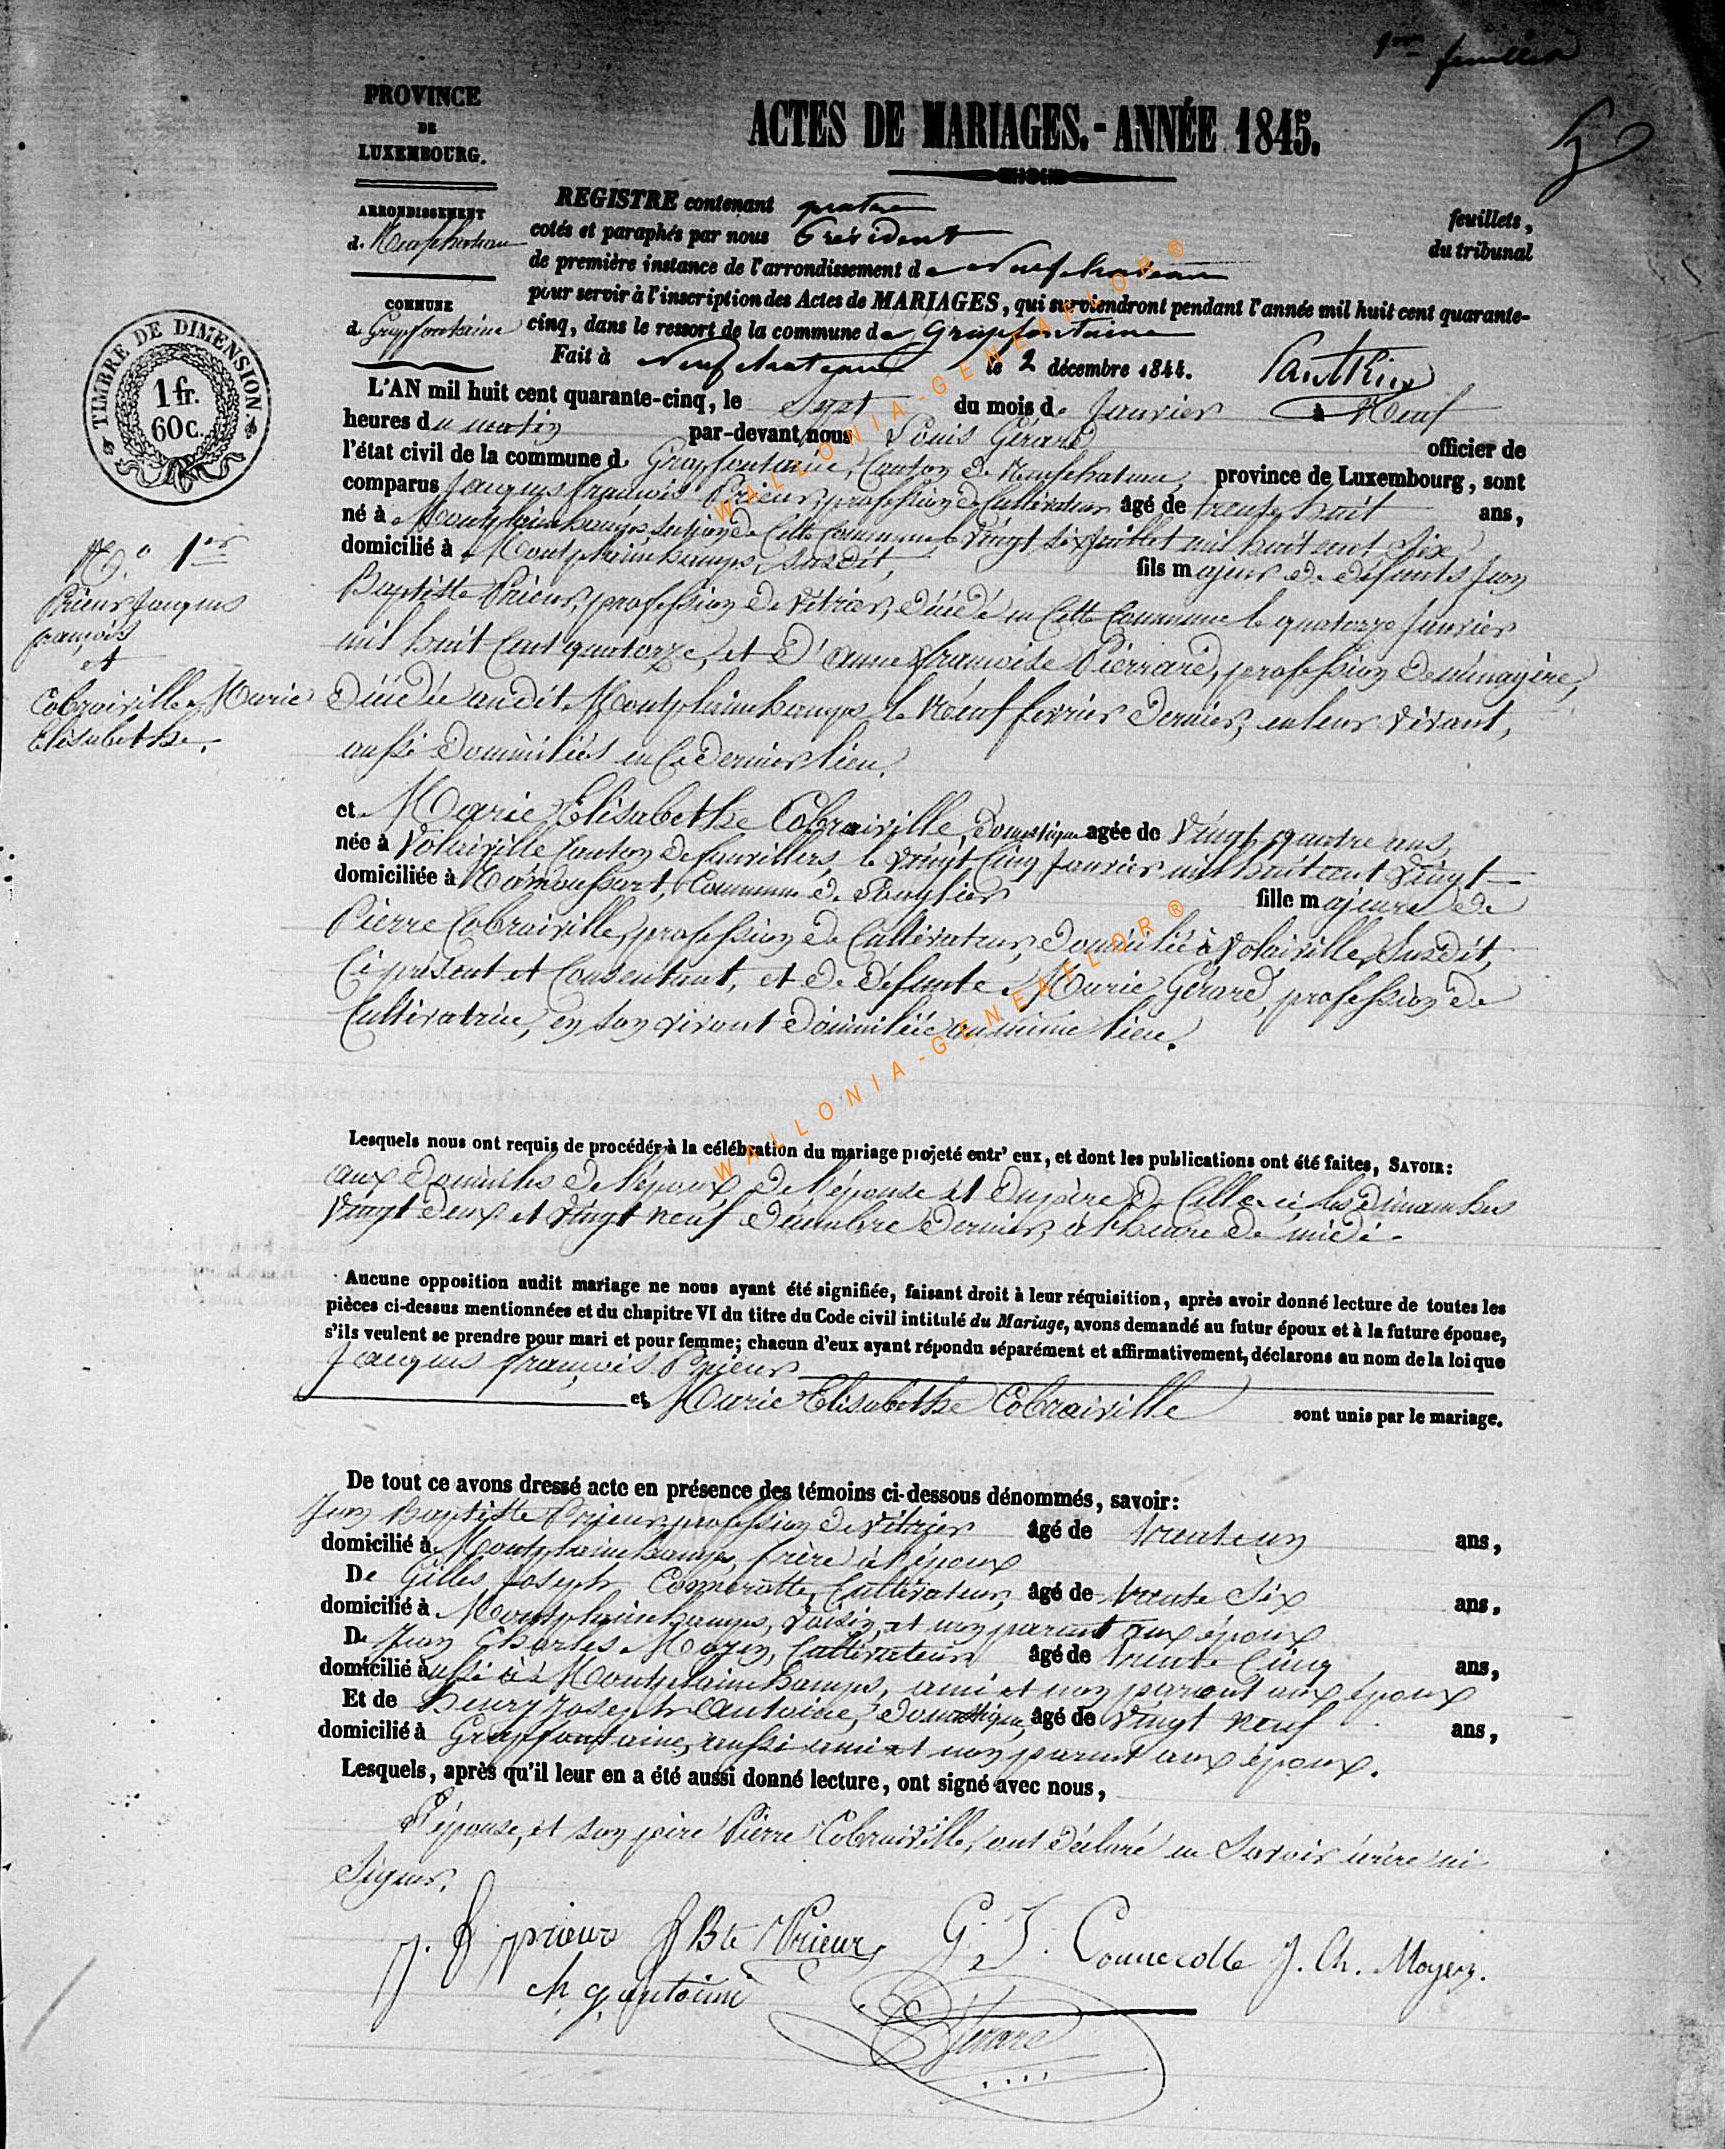 1er feuillet
PROVINCE
DE
LUXEMBOURG.
ACTES DE MARIAGES.-ANNÉE 1845.
ARRONDISSEMENT
de Neufchateau
COMMUNE
de Grapfontaine
TIMBRE DE DIMENSION.
1 fr.
60 c.
REGISTRE contenant quatre feuillets,
cotés et paraphés par nous Président du tribunal
de première instance de l'arrondissement de Neufchateau
pour servir à l'inscription des Actes de MARIAGES, qui surviendront pendant l'année mil huit cent quarante-
cinq, dans le ressort de la commune de Grapfontaine
Fait à Neufchateau le 2 décembre 1844.
L'AN mil huit cent quarante-cinq, le Sept du mois de Janvier à Neuf
heures du matin par-devant nous Louis Gérard officier de
l'état civil de la commune de Grapfontaine, Canton de Neufchateau, province de Luxembourg, sont
comparus Jacques françois Prieur, profession de Cultivateur âgé de trente huit ans,
né à Montplainchamps, section de Cette Commune le Vingt six Juillet mil huit cent Six
domicilié à Montplainchamps, susdit, fils majeur de défunts Jean
Baptiste Prieur, profession de Vitrier, décédé en Cette Commune le quatorze Janvier
mil huit Cent quatorze, et d'anne françoise Pierrard, profession de ménagère,
décédée audit Montplainchamps le Neuf fevrier dernier, en leur vivant,
aussi domiciliés en Ce dernier lieu.
N.o 1er
Prieur Jacques
françois
et
Cobraiville Marie
Elisabethe.
et Marie Elisabethe Cobraiville, domestique agée de Vingt quatre ans,
née à Volaiville Canton de fauvillers, le Vingt Cinq Janvier mil huit cent Vingt
domiciliée à Namoussart, Commune de Longlier fille majeure de
Pierre Cobraiville, profession de Cultivateur, domicilié à Volaiville, susdit,
Ci présent et Consentant, et de défunte Marie Gérard, profession de
Cultivatrice, en son vivant domiciliée au même lieu.
Lesquels nous ont requis de procéder à la célébration du mariage projeté entr' eux, et dont les publications ont été faites, SAVOIR:
aux domiciles de l'époux, de l'épouse et du père de Celle ci, les dimanches
Vingt deux et Vingt neuf décembre dernier, à l'heure de midi.
Aucune opposition audit mariage ne nous ayant été signifiée, faisant droit à leur réquisition, après avoir donné lecture de toutes les
pièces ci-dessus mentionnées et du chapitre VI du titre du Code civil intitulé du Mariage, avons demandé au futur époux et à la future épouse,
s'ils veulent se prendre pour mari et pour femme; chacun d'eux ayant répondu séparément et affirmativement, déclarons au nom de la loi que
Jacques françois Prieur
et Marie Elisabethe Cobraiville sont unis par le mariage.
De tout ce avons dressé acte en présence des témoins ci-dessous dénommés, savoir:
Jean Baptiste Prieur, profession de Vitrier âgé de trente un ans,
domicilié à Montplainchamps, frère à l'époux
De Gilles Joseph Connerotte, Cultivateur, âgé de trente Six ans,
domicilié à Montplainchamps, Voisin, et non parent aux époux
De Jean Charles Moyen, Cultivateur âgé de trente Cinq ans,
domicilié aussi à Montplainchamps, ami et non parent aux époux
Et de henry Joseph Antoine, domestique, âgé de Vingt neuf ans,
domicilié à Grapfontaine, aussi ami et non parent aux époux.
Lesquels, après qu'il leur en a été aussi donné lecture, ont signé avec nous,
L'épouse, et son père Pierre Cobraiville, ont déclaré ne Savoir écrire ni
Signer.
J. F prieur J Bte Prieur G. J. Connerotte J. Ch. Moyen.
h. j. antoine
Gerard
WALLONIA-GENEAFLOR®
WALLONIA-GENEAFLOR®